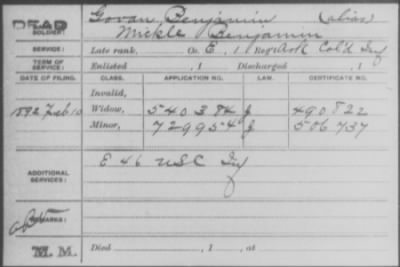 DEAD Govan, Benjamin (alias)
SOLDIER: Mickle Benjamin
SERVICE: Late rank, Co. E, 1 Reg't Ark Col'd Inf
TERM OF SERVICE: Enlisted , 1 Discharged , 1
DATE OF FILING. CLASS. APPLICATION NO. LAW. CERTIFICATE NO.
Invalid,
1892 Feb 10 Widow, 540384 490822
Minor, 729954 506737
ADDITIONAL SERVICES: E 46 USC Inf
REMARKS:
M. M. Died , 1 , at